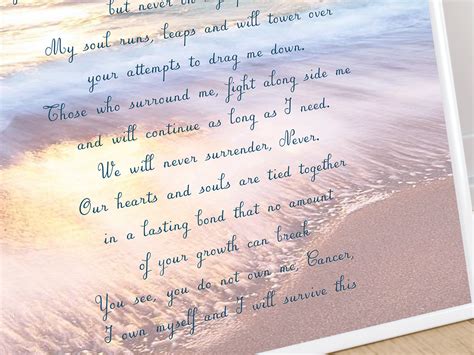 but never
My soul runs, leaps and will tower over
your attempts to drag me down.
Those who surround me, fight along side me
and will continue as long as I need.
We will never surrender, Never.
Our hearts and souls are tied together
in a lasting bond that no amount
of your growth can break
You see, you do not own me, Cancer,
I own myself and I will survive this